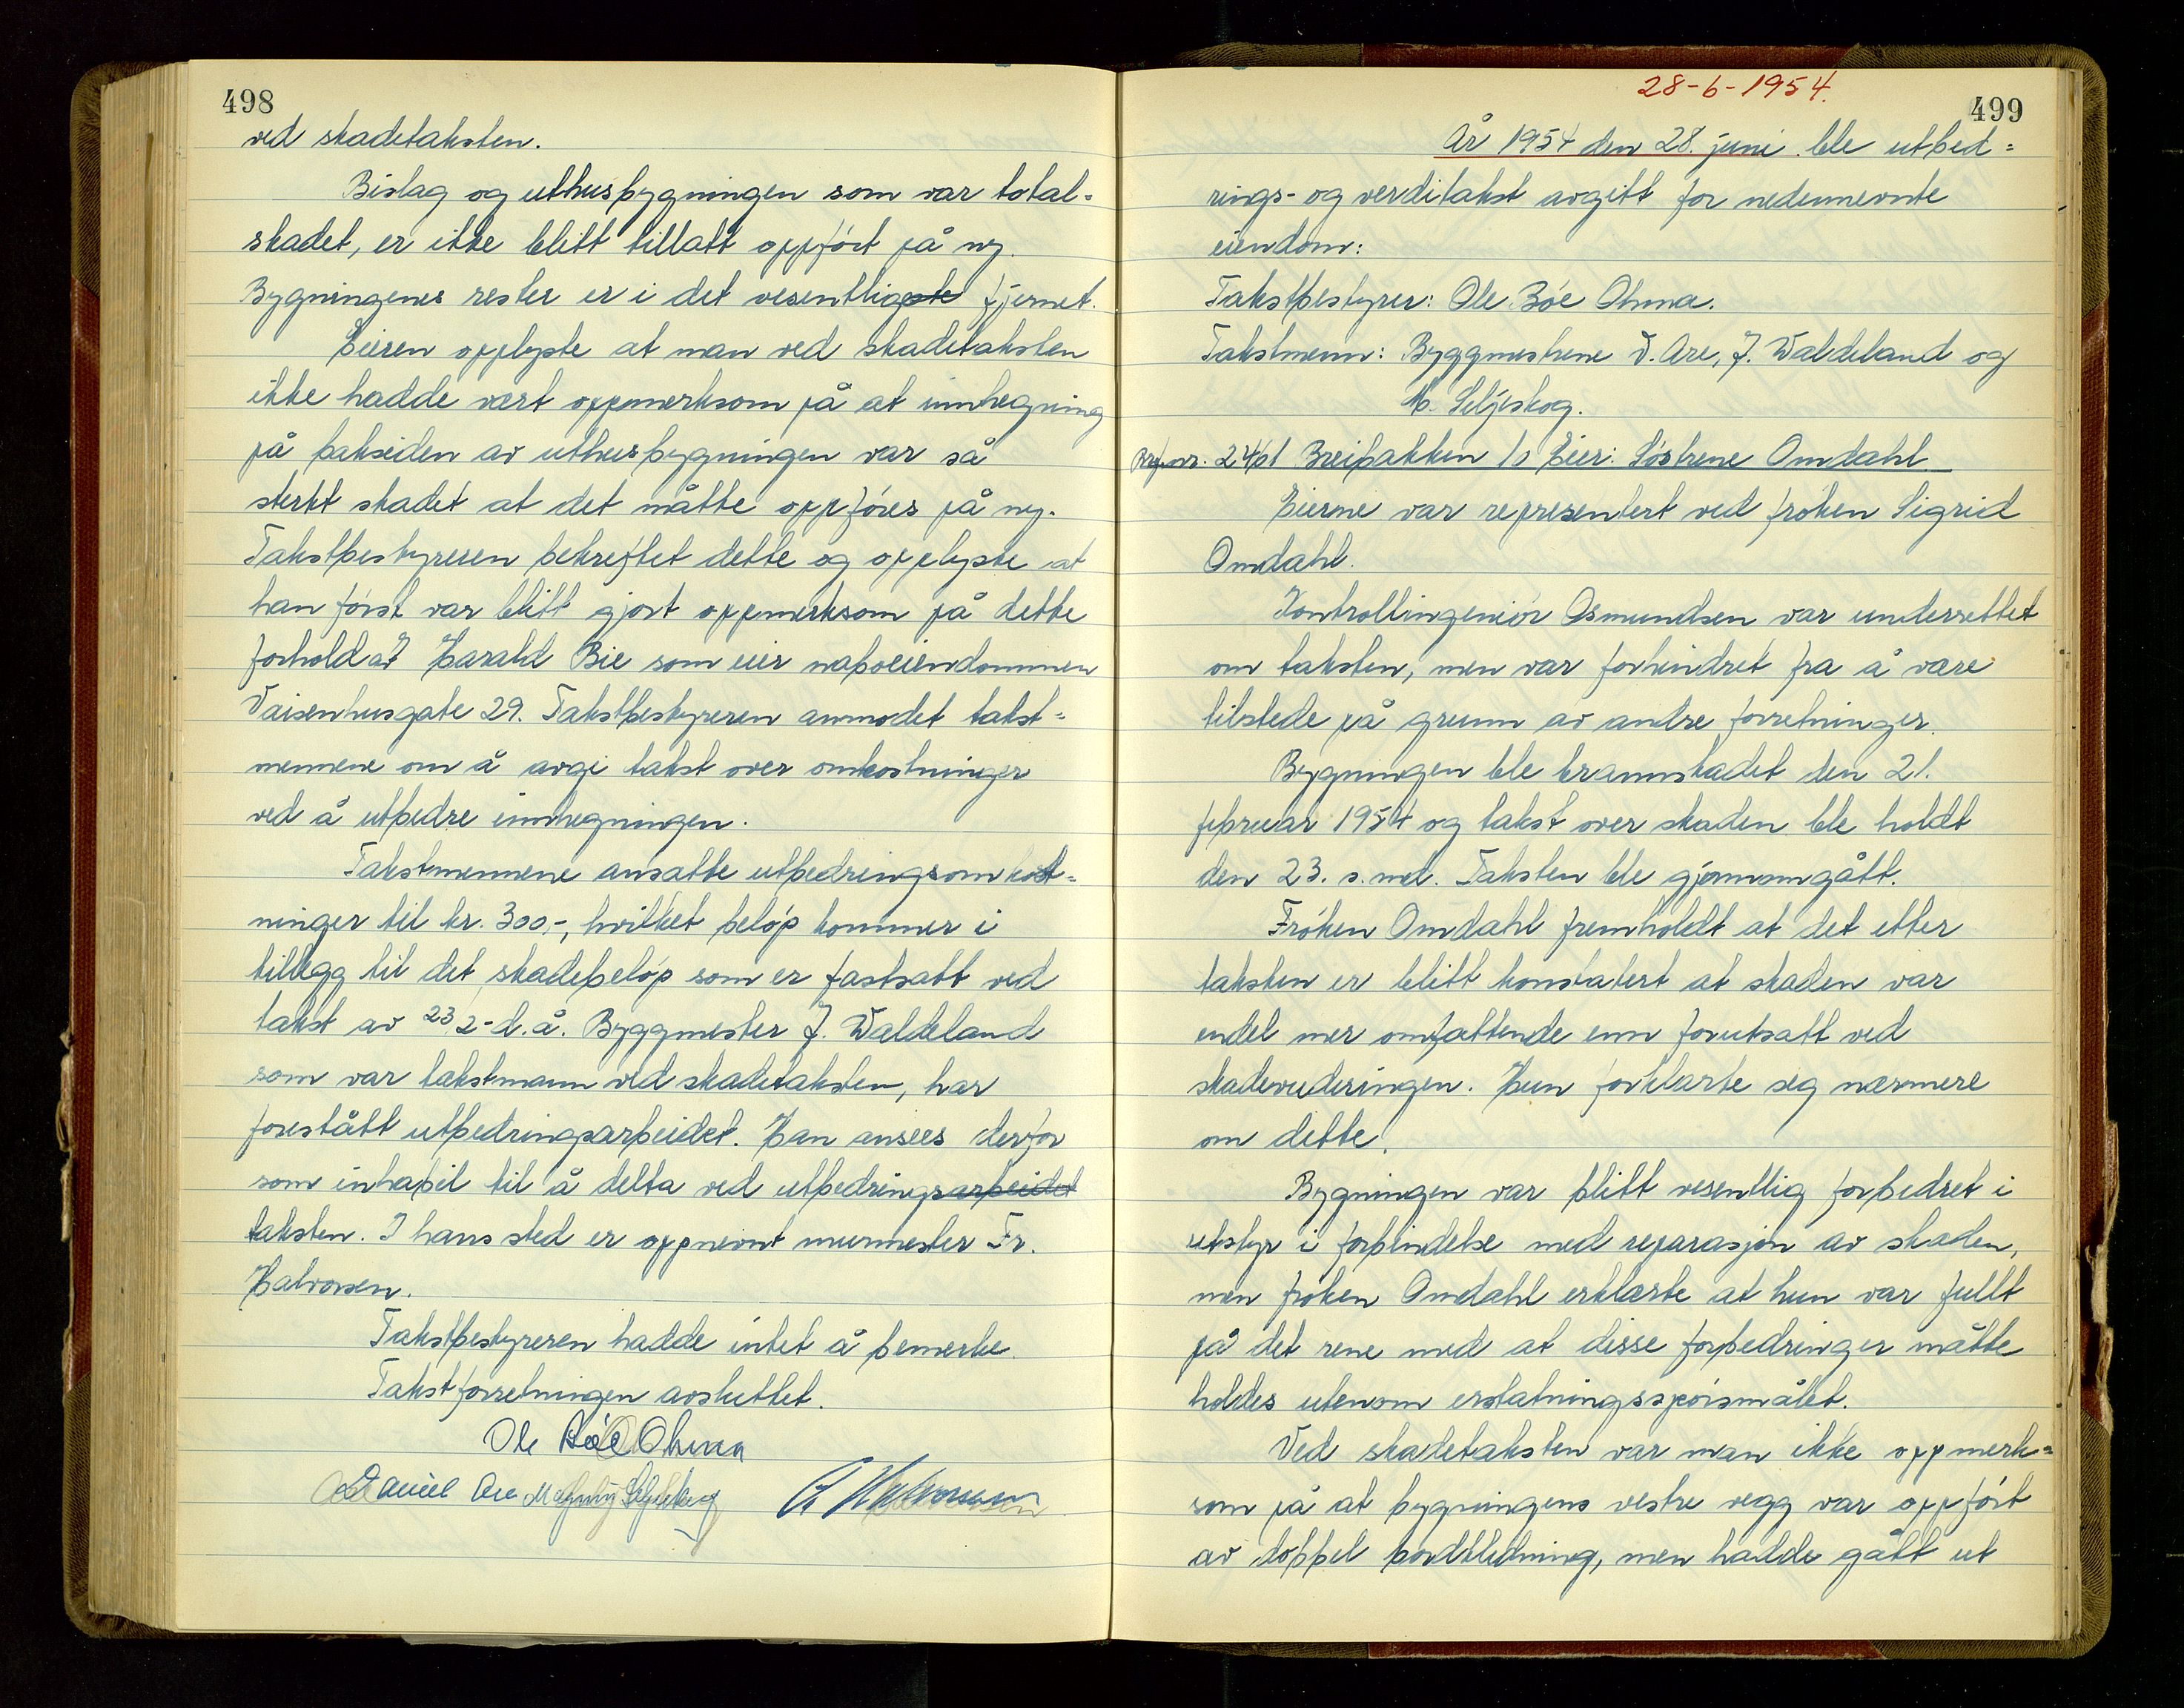 498
ved skadetaksten.
Bislag og uthusbygningen som var total=
skadet, er ikke blitt tillatt oppført på ny.
Bygningenes rester er i det vesentligste fjernet.
Eieren opplyste at man ved skadetaksten
ikke hadde vært oppmerksom på at innhegning
på baksiden av uthusbygningen var så
sterkt skadet at det måtte oppføres på ny.
Takstbestyreren bekreftet dette og opplyste at
han først var blitt gjort oppmerksom på dette
forhold av Harald Bie som eier naboeiendommen
Vaisenhusgate 29. Takstbestyreren anmodet takst=
mennene om å avgi takst over omkostninger
ved å utbedre innhegningen.
Takstmennene ansatte utbedringsomkost=
ninger til kr. 300,-, hvilket beløp kommer i
tillegg til det skadebeløp som er fastsatt ved
takst av 23/2- d.å. Byggmester J. Waldeland
som var takstmann ved skadetaksten, har
forestått utbedringsarbeidet. Han ansees derfor
som inhabil til å delta ved utbedringsarbeidet
taksten. I hans sted er oppnevnt murmester Fr.
Halvorsen.
Takstbestyreren hadde intet å bemerke.
Takstforretningen avsluttet.
Ole Bøe Ohma
Daniel Are Magnus Seljeskog Fr Halvorsen
28-6-1954.
499
År 1954 den 28. juni ble utbed=
rings- og verditakst avgitt for nedennevnte
eiendom:
Takstbestyrer: Ole Bøe Ohma.
Takstmenn: Byggmestrene D. Are, J. Waldeland og
M. Seljeskog.
Br.pr.nr. 2401 Breibakken 10 Eier: Søstrene Omdahl
Eierne var representert ved frøken Sigrid
Omdahl.
Kontrollingeniør Osmundsen var underrettet
om taksten, men var forhindret fra å være
tilstede på grunn av andre forretninger.
Bygningen ble brannskadet den 21.
februar 1954 og takst over skaden ble holdt
den 23. s.md. Taksten ble gjennomgått.
Frøken Omdahl fremholdt at det etter
taksten er blitt konstatert at skaden var
endel mer omfattende enn forutsatt ved
skadevurderingen. Hun forklarte seg nærmere
om dette.
Bygningen var blitt vesentlig forbedret i
utstyr i forbindelse med reparasjon av skaden,
men frøken Omdahl erklærte at hun var fullt
på det rene med at disse forbedringer måtte
holdes utenom erstatningsspørsmålet.
Ved skadetaksten var man ikke oppmerk=
som på at bygningens vestre vegg var oppført
av dobbel bordkledning, men hadde gått ut